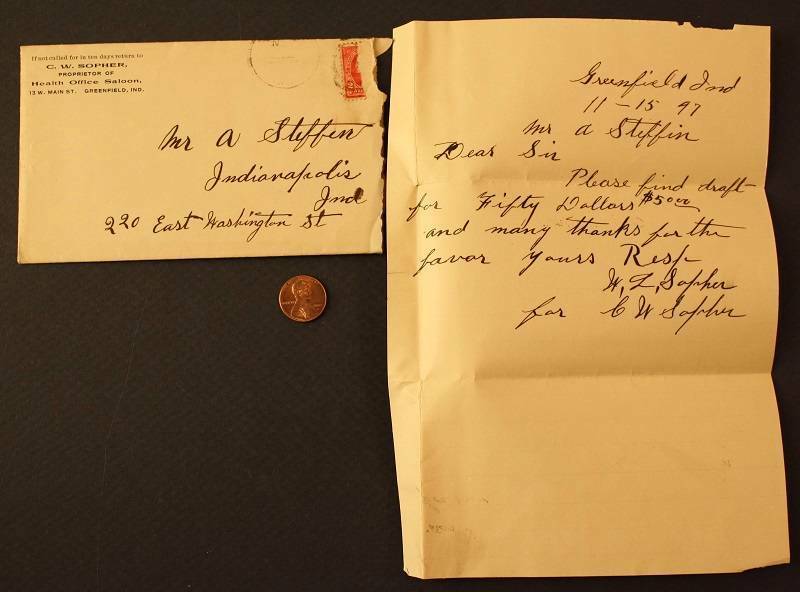 If not called for in ten days return to
C. W. SOPHER,
PROPRIETOR OF
Health Office Saloon,
13 W. MAIN ST. GREENFIELD, IND.
Mr A Steffen
Indianapolis
Ind
220 East Washington St
Greenfield Ind
11-15 97
Mr A Steffin
Dear Sir
Please find draft
for Fifty Dollars $50.00
and many thanks for the
favor Yours Resp
W. L. Sopher
for C W Sopher